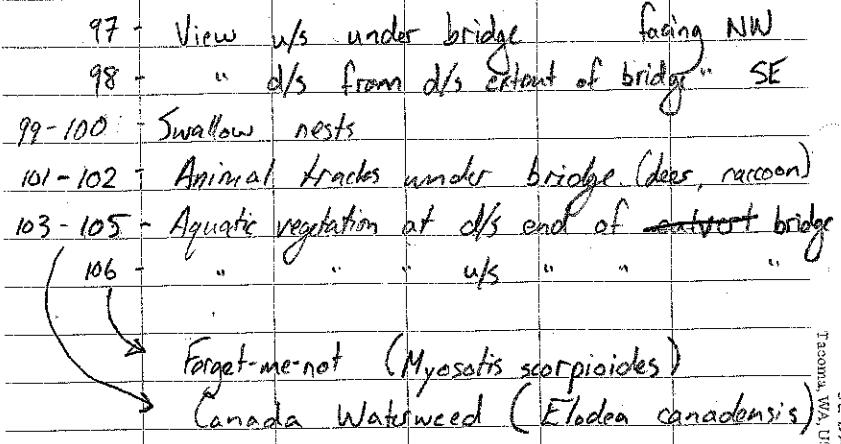 97 - View u/s under bridge facing NW
98 - " d/s from d/s extent of bridge " SE
99-100 - Swallow nests
101-102 - Animal tracks under bridge (deer, raccoon)
103-105 - Aquatic vegetation at d/s end of culvert bridge
106 - " " " u/s " " "
Forget-me-not (Myosotis scorpioides)
Canada Waterweed (Elodea canadensis)
Tacoma, WA, U